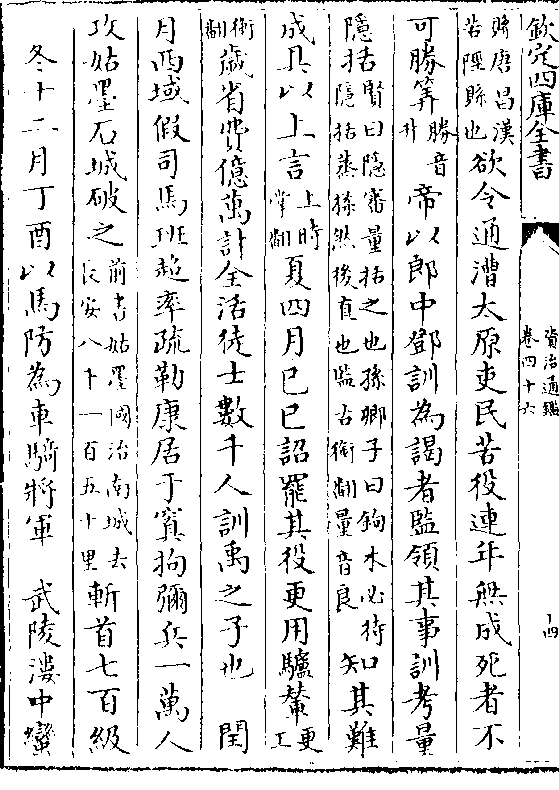 欽定四庫全書
資治通鑑
卷四十六
十四
將唐昌漢
苦陘縣也
欲令通漕太原吏民苦役連年無成死者不
可勝筭
勝音
升
帝以郎中鄧訓為謁者監領其事訓考量
隱括
賢曰隱審量括之也孫卿子曰鉤木必待
隱括蒸揉然後直也監古銜翻量音良
知其難
成具以上言
上時
掌翻
夏四月己巳詔罷其役更用驢輦
更
工
衡
翻
歲省費億萬計全活徒士數千人訓禹之子也 閏
月西域假司馬班超率疏勒康居于窴拘彌兵一萬人
攻姑墨石城破之
前書姑墨國治南城去
長安八千一百五十里
斬首七百級
冬十二月丁酉以馬防為車騎將軍 武陵漊中蠻